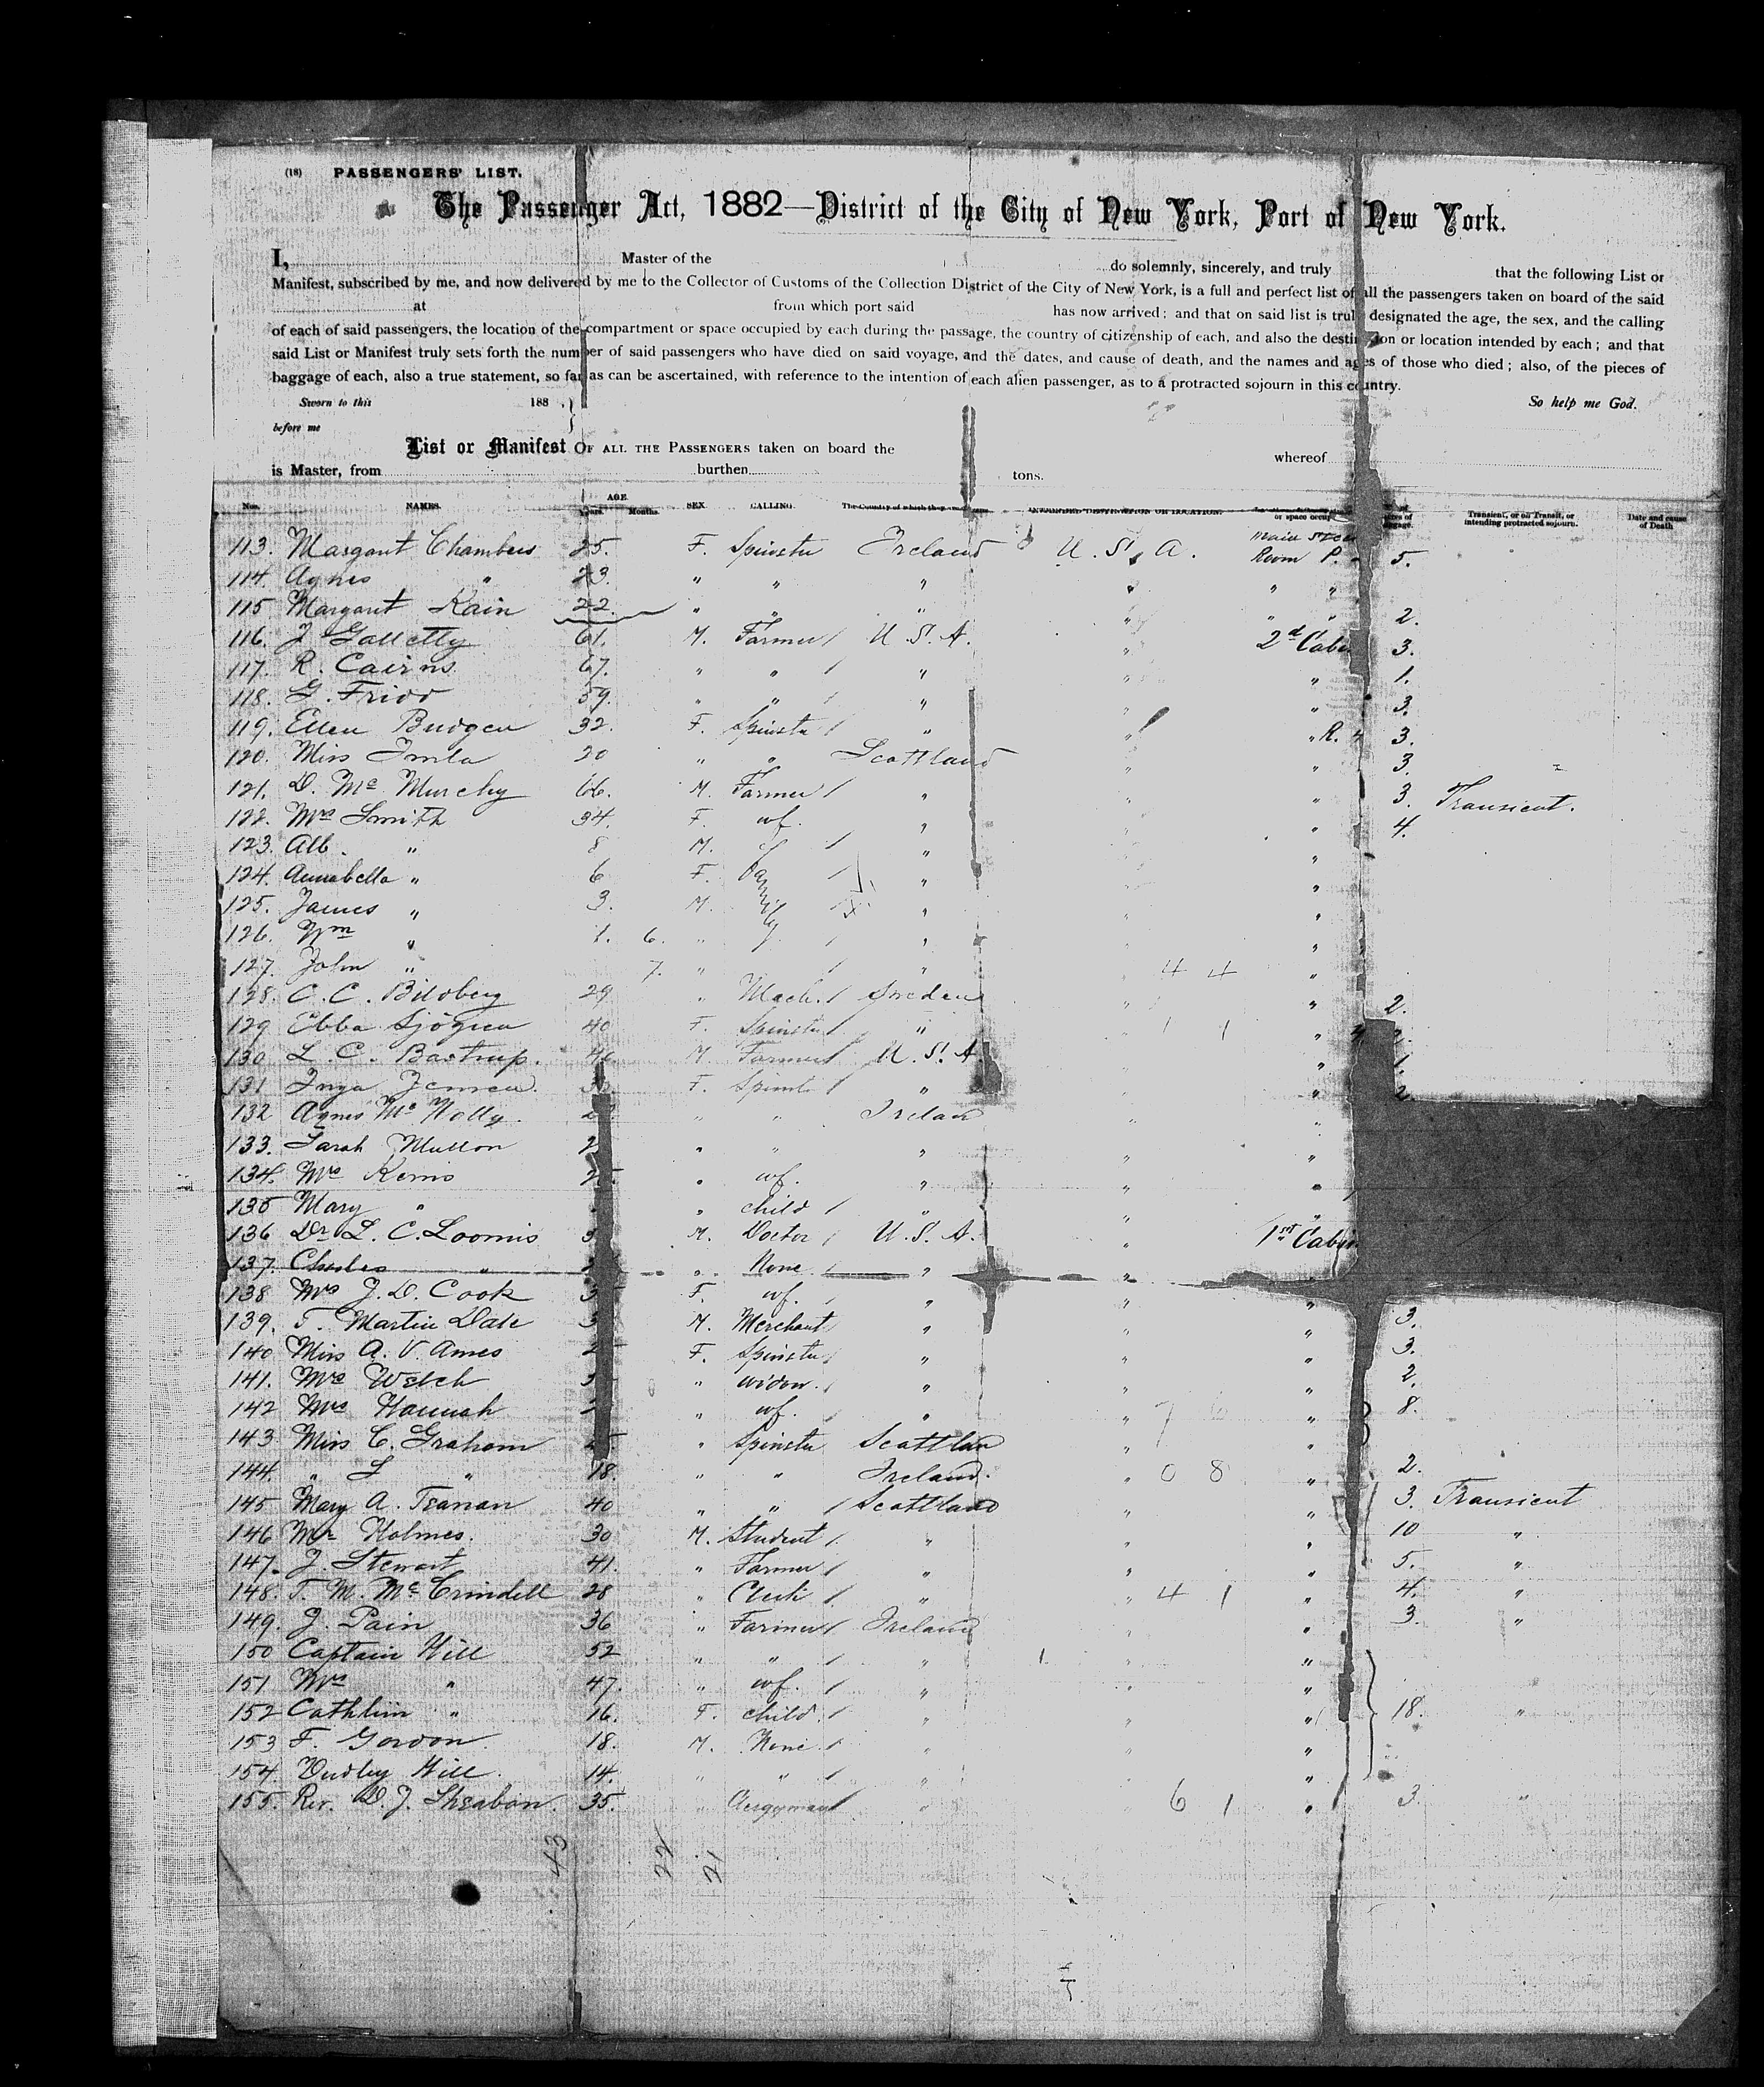 (18) PASSENGERS' LIST.
The Passenger Act, 1882—District of the City of New York, Port of New York.
I, Master of the do solemnly, sincerely, and truly that the following List or
Manifest, subscribed by me, and now delivered by me to the Collector of Customs of the Collection District of the City of New York, is a full and perfect list of all the passengers taken on board of the said
at from which port said has now arrived; and that on said list is truly designated the age, the sex, and the calling
of each of said passengers, the location of the compartment or space occupied by each during the passage, the country of citizenship of each, and also the destination or location intended by each; and that
said List or Manifest truly sets forth the number of said passengers who have died on said voyage, and the dates, and cause of death, and the names and ages of those who died; also, of the pieces of
baggage of each, also a true statement, so far as can be ascertained, with reference to the intention of each alien passenger, as to a protracted sojourn in this country.
Sworn to this 188 So help me God.
before me
List or Manifest OF ALL THE PASSENGERS taken on board the whereof
is Master, from burthen tons.
Nos. NAMES. AGE. Years. Months. SEX. CALLING. or space Transient, or on Transit, or intending protracted sojourn. Date and cause of Death
113. Margaret Chambers 25. F. Spinster Ireland U. S. A. Room P. 5.
114. Agnes " 23. " " " " " "
115 Margaret Kain 22. " " " " " " 2.
116. J Galletty 61. M. Farmer U. S. A. " 2d Cabi 3.
117. R. Cairns 67. " " " " " 1.
118. G. 59. " " " " " 3.
119. Ellen Budgen 32. F. Spinster " " " R. 3.
120. Miss Imla 20 " " Scottland " " 3.
121. D. Mc Murchy 66. M. Farmer " " " 3. Transient.
122. Mrs Smith 34. F. wf. " " " 4.
123. Alb. " 8 M. Family " " "
124. Annabella " 6 F. " " "
125. James " 3. M. " " "
126. Wm " 1. 6. " " " "
127. John " 7. " " " 4 4 "
128. C. C. Bildberg 29 " Mach. Sweden " " 2.
129 Ebba Sjögren 40 F. Spinster " " 1 1 "
130 L. C. Bastrup. M. Farmer U. S. A " " 1.
131 Inga Jensen. F. Spinst " " 2
132 Agnes Mc Nolly. " " Irelan " "
133. Sarah Mullon " " " " "
134. Mrs Kerns " wf. " " "
135 Mary " " child " " "
136 Dr L. C. Loomis M. Doctor U. S. A. " 1st Cabin
137. Charles " " None. " "
138 Mrs J. D. Cook F. wf. " " "
139. T. Martin Dale M. Merchant " " " 3.
140 Miss A. V. Ames F. Spinster " " " 3.
141. Mrs Welch " widow. " " " 2.
142 Mrs Hannah " wf. " " 7 6 " 8.
143 Miss C. Graham " Spinster Scottlan " "
144. " L " 18. " " Ireland. " 0 8 " 2.
145 Mary A. Tranan 40 " " Scottland " " 3. Transient
146 Mr Holmes. 30 M. Student " " " 10 "
147. J. Stewart 41. " Farmer " " " 5. "
148. T. M. Mc Crindell 28 " Clerk " " 4 1 " 4. "
149. J. Pain 36 " Farmer Ireland " 3. "
150 Captain Hill 52 " " " 1 " "
151 Mrs " 47. " wf. " " "
152 Cathlin " 16. F. child. " " " 18. "
153 F. Gordon 18. M. None. " " "
154. Dudley Hill. 14. " " " " "
155. Rev. D. J. Sheabon. 35. " Clergyman " " 6 1 " 3. "
43 22 21